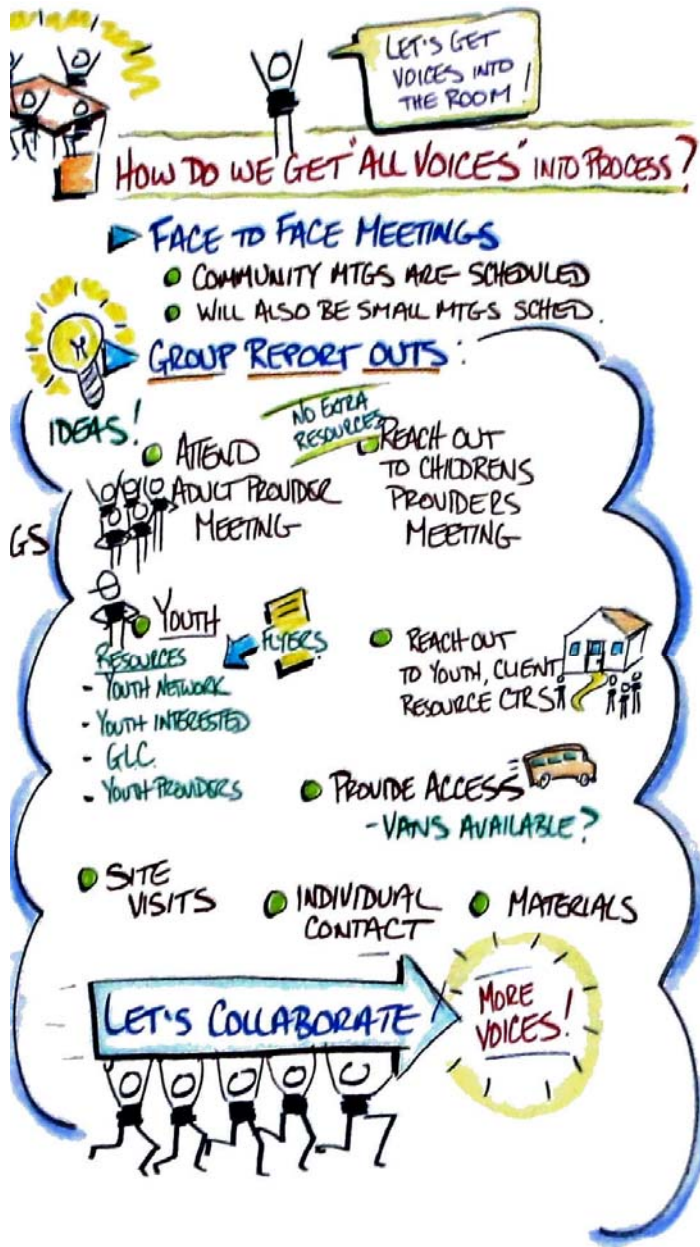 LET'S GET
VOICES INTO
THE ROOM!
HOW DO WE GET "ALL VOICES" INTO PROCESS?
FACE TO FACE MEETINGS
COMMUNITY MTGS ARE SCHEDULED
WILL ALSO BE SMALL MTGS SCHED.
GROUP REPORT OUTS:
IDEAS!
NO EXTRA
RESOURCES
ATTEND
ADULT PROVIDER
MEETING
REACH OUT
TO CHILDRENS
PROVIDERS
MEETING
GS
YOUTH
FLYERS
RESOURCES
- YOUTH NETWORK
- YOUTH INTERESTED
- GLC.
- YOUTH PROVIDERS
REACH OUT
TO YOUTH, CLIENT
RESOURCE CTRS
PROVIDE ACCESS
- VANS AVAILABLE?
SITE
VISITS
INDIVIDUAL
CONTACT
MATERIALS
LET'S COLLABORATE!
MORE
VOICES!